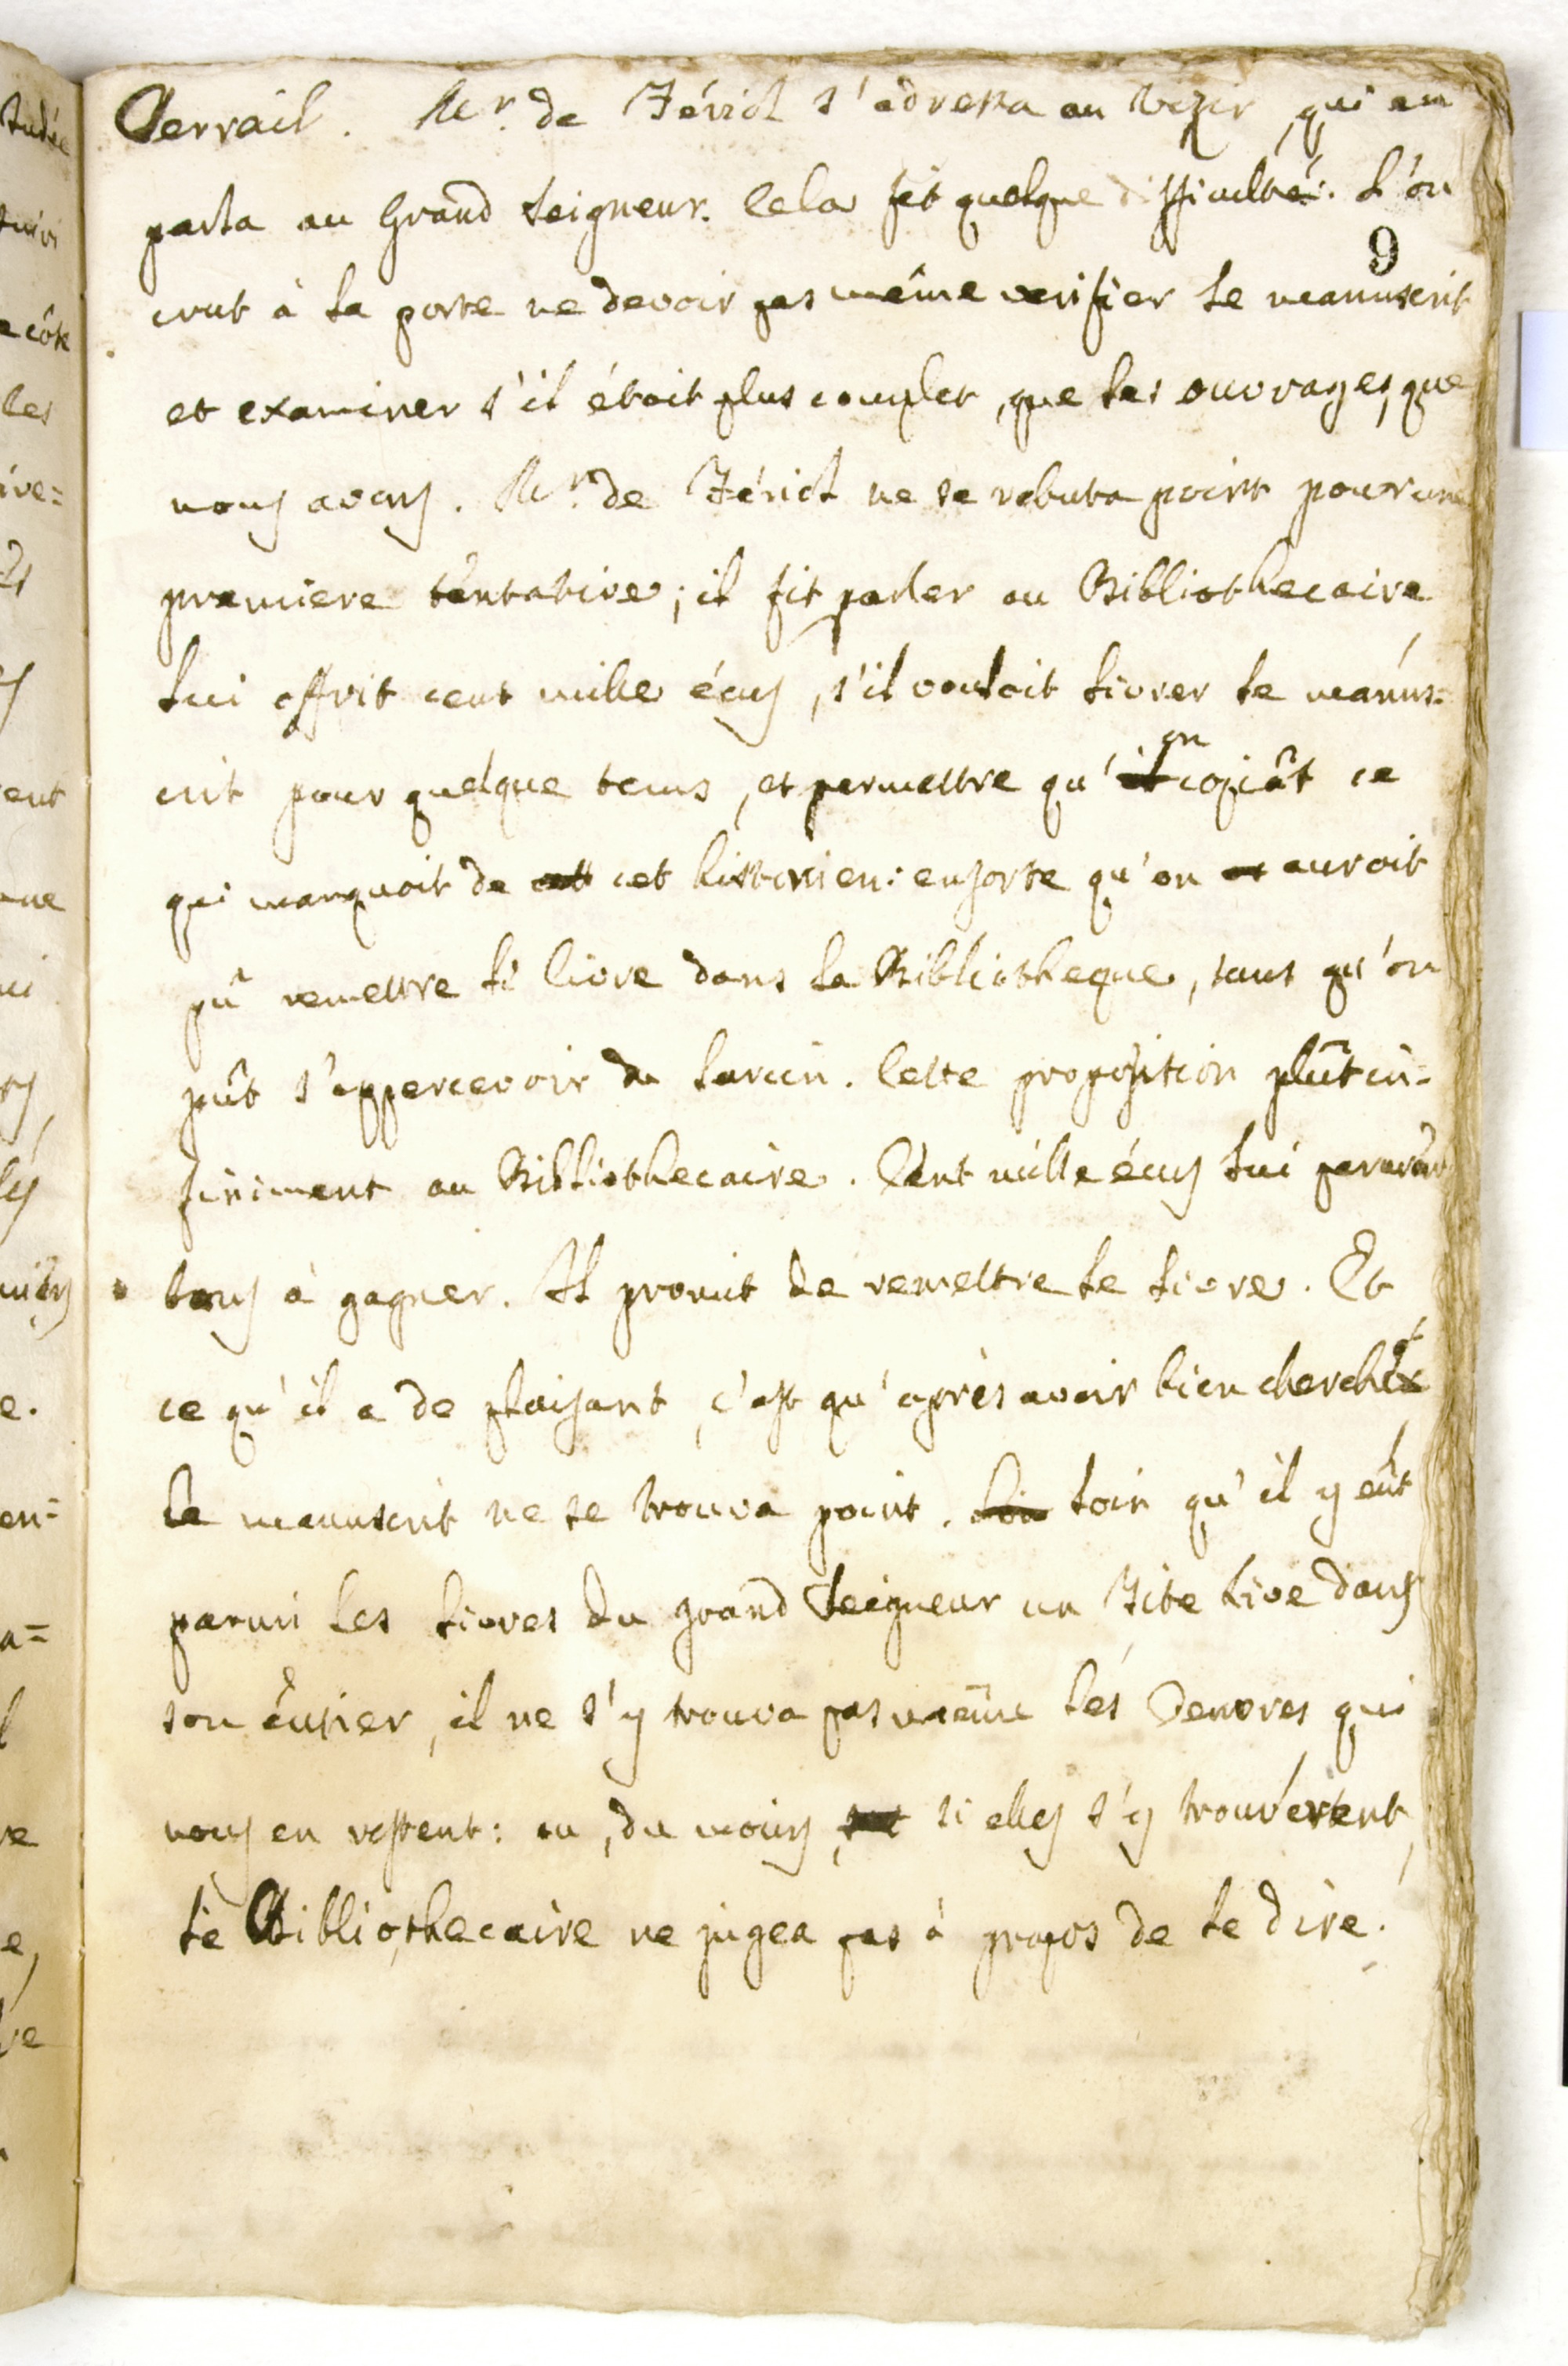 Serrail. Mr. de Fériol s'adressa au Vezir, qui en
parla au Grand Seigneur. Cela fit quelque difficulté. L'on
9
crut à la porte ne devoir pas même verifier le manuscrit
et examiner s'il étoit plus complet, que les ouvrages, que
nous avons. Mr. de Fériol ne se rebuta point pour une
premiere tentative; il fit parler au Bibliothecaire
lui offrit cent mille écus, s'il vouloit livrer le manus=
crit pour quelque tems, et permettre qu'il on copiât ce
qui manquoit de cet historien: ensorte qu'on auroit
pû remettre le livre dans la Bibliotheque, sans qu'on
pût s'appercevoir du larcin. Cette proposition plût in=
finiment au Bibliothecaire. Cent mille écus lui parurent
bons à gagner. Il promit de remettre le livre. Et
ce qu'il a de plaisant, c'est qu'après avoir bien cherché
le manuscrit ne se trouva point. Loin qu'il y eût
parmi les livres du grand Seigneur un Tite Live dans
son entier, il ne s'y trouva pas même les Oeuvres qui
nous en restent: ou, du moins, si elles s'y trouverent,
le Bibliothecaire ne jugea pas à propos de le dire.